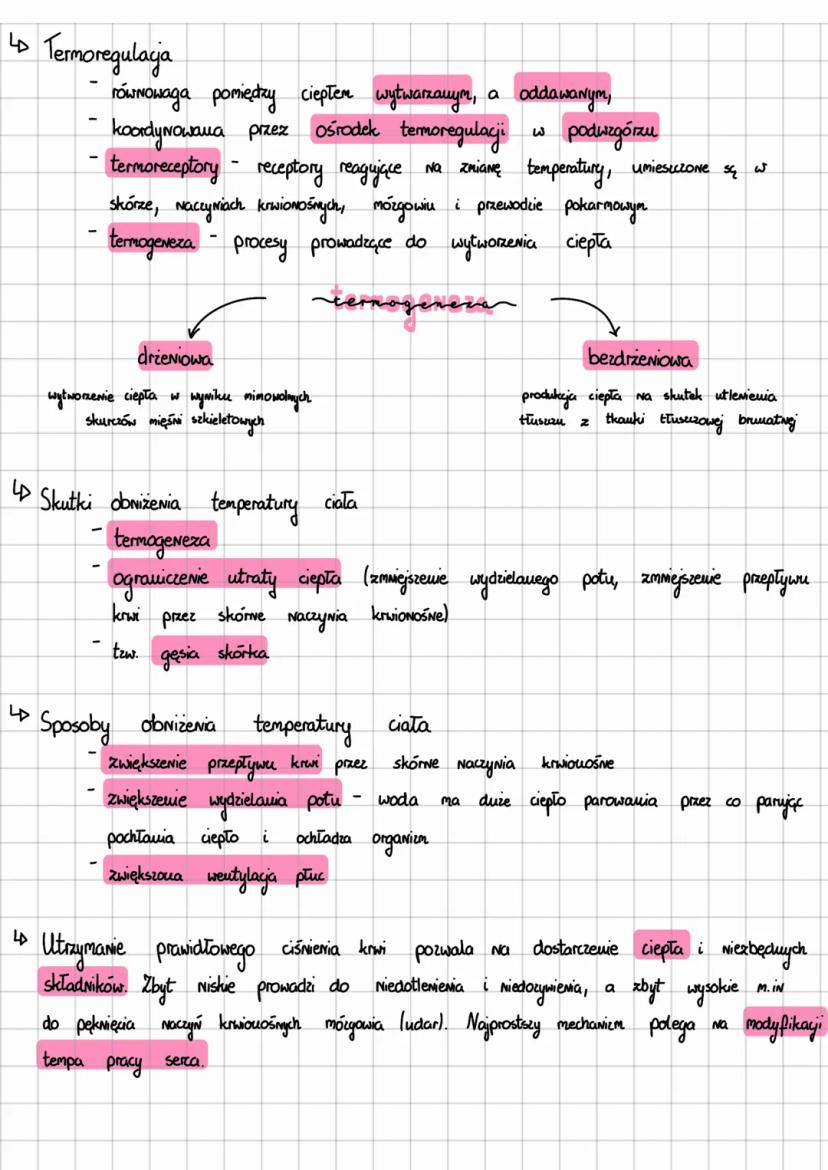 ↳ Termoregulacja
- równowaga pomiędzy ciepłem wytwarzanym, a oddawanym,
- koordynowana przez ośrodek termoregulacji w podwzgórzu
- termoreceptory - receptory reagujące na zmianę temperatury, umieszczone są w
skórze, naczyniach krwionośnych, mózgowiu i przewodzie pokarmowym
- termogeneza - procesy prowadzące do wytworzenia ciepła
termogeneza
drżeniowa bezdrżeniowa
wytworzenie ciepła w wyniku mimowolnych produkcja ciepła na skutek utlenienia
skurczów mięśni szkieletowych tłuszczu z tkanki tłuszczowej brunatnej
↳ Skutki obniżenia temperatury ciała
- termogeneza
- ograniczenie utraty ciepła (zmniejszenie wydzielanego potu, zmniejszenie przepływu
krwi przez skórne naczynia krwionośne)
- tzw. gęsia skórka
↳ Sposoby obniżenia temperatury ciała
- zwiększenie przepływu krwi przez skórne naczynia krwionośne
- zwiększenie wydzielania potu - woda ma duże ciepło parowania przez co parując
pochłania ciepło i ochładza organizm
- zwiększona wentylacja płuc
↳ Utrzymanie prawidłowego ciśnienia krwi pozwala na dostarczenie ciepła i niezbędnych
składników. Zbyt niskie prowadzi do niedotlenienia i niedożywienia, a zbyt wysokie m.in
do pęknięcia naczyń krwionośnych mózgowia (udar). Najprostszy mechanizm polega na modyfikacji
tempa pracy serca.